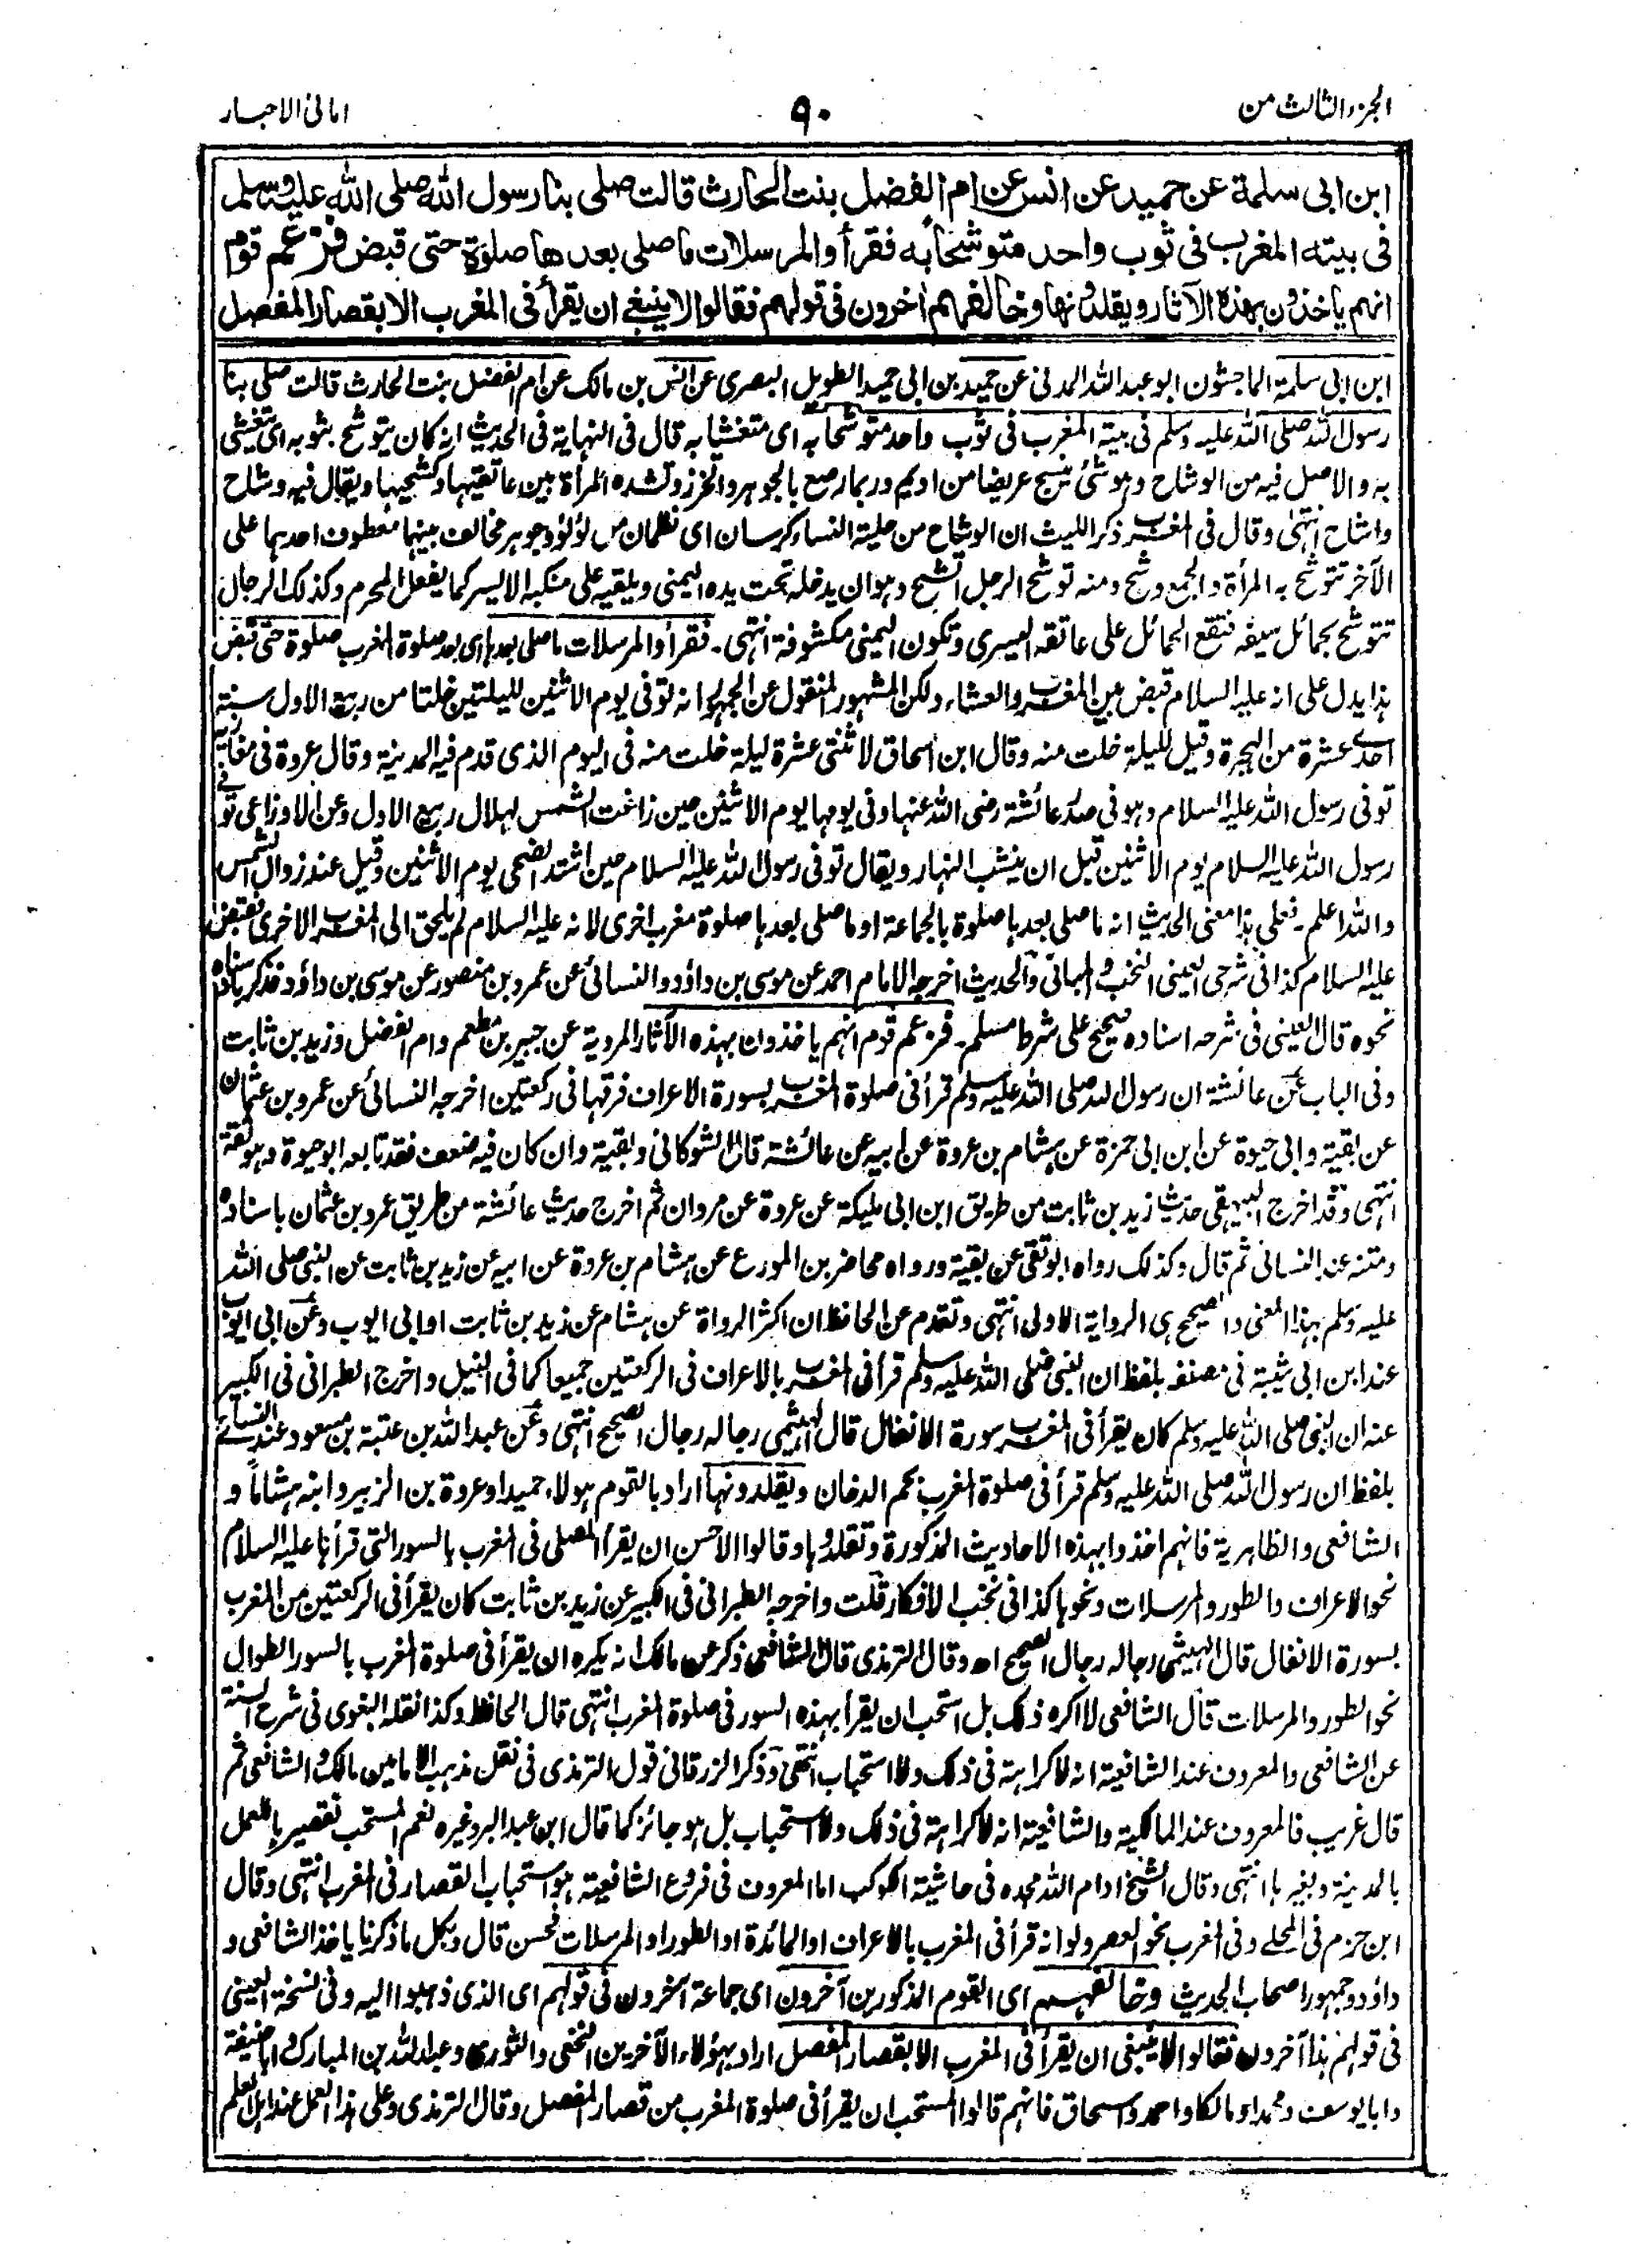 الجزء الثالث من
٩٠
امانی الاحبار
ابن ابی سلمة عن حمید عن انس عن ام الفضل بنت الحارث قالت صلی بنا رسول الله صلی الله علیه وسلم
فی بیته المغرب فی ثوب واحد متوشحا به فقرأ والمرسلات ما صلی بعدها صلوة حتی قبض فزعم قوم
انهم یأخذون بهذه الآثار ویقلدونها وخالفهم اخرون فی قولهم فقالوا لا ینبغی ان یقرأ فی المغرب الا بقصار المفصل
ابن ابی سلمة الماجشون ابو عبد الله المدنی عن حمید بن ابی حمید الطویل البصری عن انس بن مالک عن ام الفضل بنت الحارث قالت صلی بنا
رسول الله صلی الله علیه وسلم فی بیته المغرب فی ثوب واحد متوشحا به ای متغشیا به قال فی النهایة فی الحدیث انه کان یتوشح بثوبه ای یتغشی
به والاصل فیه من الوشاح وهو شئ ینسج عریضا من ادیم وربما رصع بالجوهر والخرز وتشده المرأة بین عاتقیها وکشحیها ویقال فیه وشاح
واشاح انتهی وقال فی المغرب ذکر اللیث ان الوشاح من حلیة النساء کرسان ای نظمان من لؤلؤ وجوهر مخالف بینهما معطوف احدهما علی
الآخر تتوشح به المرأة والجمع وشح ومنه توشح الرجل اتشح وهو ان یدخله تحت یده الیمنی ویلقیه علی منکبه الایسر کما یفعل المحرم وکذلک الرجال
تتوشح بحمائل سیفه فتقع الحمائل علی عاتقه الیسری وتکون الیمنی مکشوفة انتهی۔ فقرأ والمرسلات ما صلی بعدها ای بعد صلوة المغرب صلوة حتی قبض
هذا یدل علی انه علیه السلام قبض بین المغرب والعشاء ولکن المشهور المنقول عن الجمهور انه توفی یوم الاثنین للیلتین خلتا من ربیع الاول سنة
احدی عشرة من الهجرة وقیل للیلة خلت منه وقال ابن اسحاق لاثنتی عشرة لیلة خلت منه فی الیوم الذی قدم فیه المدینة وقال عروة فی مغازیه
توفی رسول الله علیه السلام وهو فی صدر عائشة رضی الله عنها وفی یومها یوم الاثنین حین زاغت الشمس لهلال ربیع الاول وعن الاوزاعی توفی
رسول الله علیه السلام یوم الاثنین قبل ان ینشب النهار ویقال توفی رسول الله علیه السلام حین اشتد الضحی یوم الاثنین وقیل عند زوال الشمس
والله اعلم۔ فعلی هذا معنی الحدیث انه ما صلی بعدها صلوة بالجماعة او ما صلی بعدها صلوة مغرب اخری لانه علیه السلام لم یلحق الی المغرب الاخری فقبض
علیه السلام کذا فی شرحی العینی النخب والمبانی والحدیث اخرجه الامام احمد عن موسی بن داؤد والنسائی عن عمرو بن منصور عن موسی بن داؤد فذکر باسناده
نحوه قال العینی فی شرحه اسناده صحیح علی شرط مسلم۔ فزعم قوم انهم یاخذون بهذه الآثار المرویة عن جبیر بن مطعم وام الفضل وزید بن ثابت
وفی الباب عن عائشة ان رسول الله صلی الله علیه وسلم قرأ فی صلوة المغرب بسورة الاعراف فرقها فی رکعتین اخرجه النسائی عن عمرو بن عثمان
عن بقیة وابی حیوة عن ابن ابی حمزة عن هشام بن عروة عن ابیه عن عائشة قال الشوکانی وبقیة وان کان فیه ضعف فقد تابعه ابو حیوة وهو ثقة
انتهی وقد اخرج البیهقی حدیث زید بن ثابت من طریق ابن ابی ملیکة عن عروة عن مروان ثم اخرج حدیث عائشة من طریق عمرو بن عثمان باسناده
ومتنه عند النسائی ثم قال وکذلک رواه ابو تقی عن بقیة ورواه محاضر بن المورع عن هشام بن عروة عن ابیه عن زید بن ثابت عن النبی صلی الله
علیه وسلم بهذا المعنی والصحیح هی الروایة الاولی انتهی وتقدم عن الحافظ ان اکثر الرواة عن هشام عن زید بن ثابت او ابی ایوب وعن ابی ایوب
عند ابن ابی شیبة فی مصنفه بلفظ ان النبی صلی الله علیه وسلم قرأ فی المغرب بالاعراف فی الرکعتین جمیعا کما فی النیل واخرج الطبرانی فی الکبیر
عنه ان النبی صلی الله علیه وسلم کان یقرأ فی المغرب سورة الانفال قال الهیثمی رجاله رجال الصحیح انتهی وعن عبد الله بن عتبة بن مسعود عند النسائی
بلفظ ان رسول الله صلی الله علیه وسلم قرأ فی صلوة المغرب بحم الدخان ویقلدونها اراد بالقوم هولاء حمیدا وعروة بن الزبیر وابنه هشاما و
الشافعی والظاهریة فانهم اخذوا بهذه الاحادیث المذکورة وتقلدوها وقالوا الاحسن ان یقرأ المصلی فی المغرب بالسور التی قرأها علیه السلام
نحو الاعراف والطور والمرسلات ونحوها کذا فی نخب الافکار قلت واخرجه الطبرانی فی الکبیر عن زید بن ثابت کان یقرأ فی الرکعتین من المغرب
بسورة الانفال قال الهیثمی رجاله رجال الصحیح اه وقال الترمذی قال الشافعی ذکر عن مالک انه یکره ان یقرأ فی صلوة المغرب بالسور الطوال
نحو الطور والمرسلات قال الشافعی لا اکره ذلک بل استحب ان یقرأ بهذه السور فی صلوة المغرب انتهی قال الحافظ وکذا نقله البغوی فی شرح السنة
عن الشافعی والمعروف عند الشافعیة انه لا کراهة فی ذلک ولا استحباب انتهی وذکر الزرقانی قول الترمذی فی نقل مذهب الامامین مالک والشافعی ثم
قال غریب فالمعروف عند المالکیة والشافعیة انه لا کراهة فی ذلک ولا استحباب بل هو جائز کما قال ابن عبد البر وغیره نعم المستحب تقصیر بالعمل
بالمدینة وبغیرها انتهی وقال الشیخ ادام الله مجده فی حاشیة الکوکب اما المعروف فی فروع الشافعیة هو استحباب القصار فی المغرب انتهی وقال
ابن حزم فی المحلی وفی المغرب نحو العصر ولو انه قرأ فی المغرب بالاعراف او المائدة او الطور او المرسلات فحسن قال وبکل ما ذکرنا یاخذ الشافعی و
داؤد وجمهور اصحاب الحدیث وخالفهم ای القوم المذکورین آخرون ای جماعة آخرون فی قولهم ای الذی ذهبوا الیه وفی نسخة العینی
فی قولهم هذا آخرون فقالوا لا ینبغی ان یقرأ فی المغرب الا بقصار المفصل اراد بهؤلاء الآخرین النخعی والثوری وعبد الله بن المبارک وابا حنیفة
وابا یوسف ومحمدا ومالکا واحمد واسحاق فانهم قالوا المستحب ان یقرأ فی صلوة المغرب من قصار المفصل وقال الترمذی وعلی هذا العمل عند اهل العلم